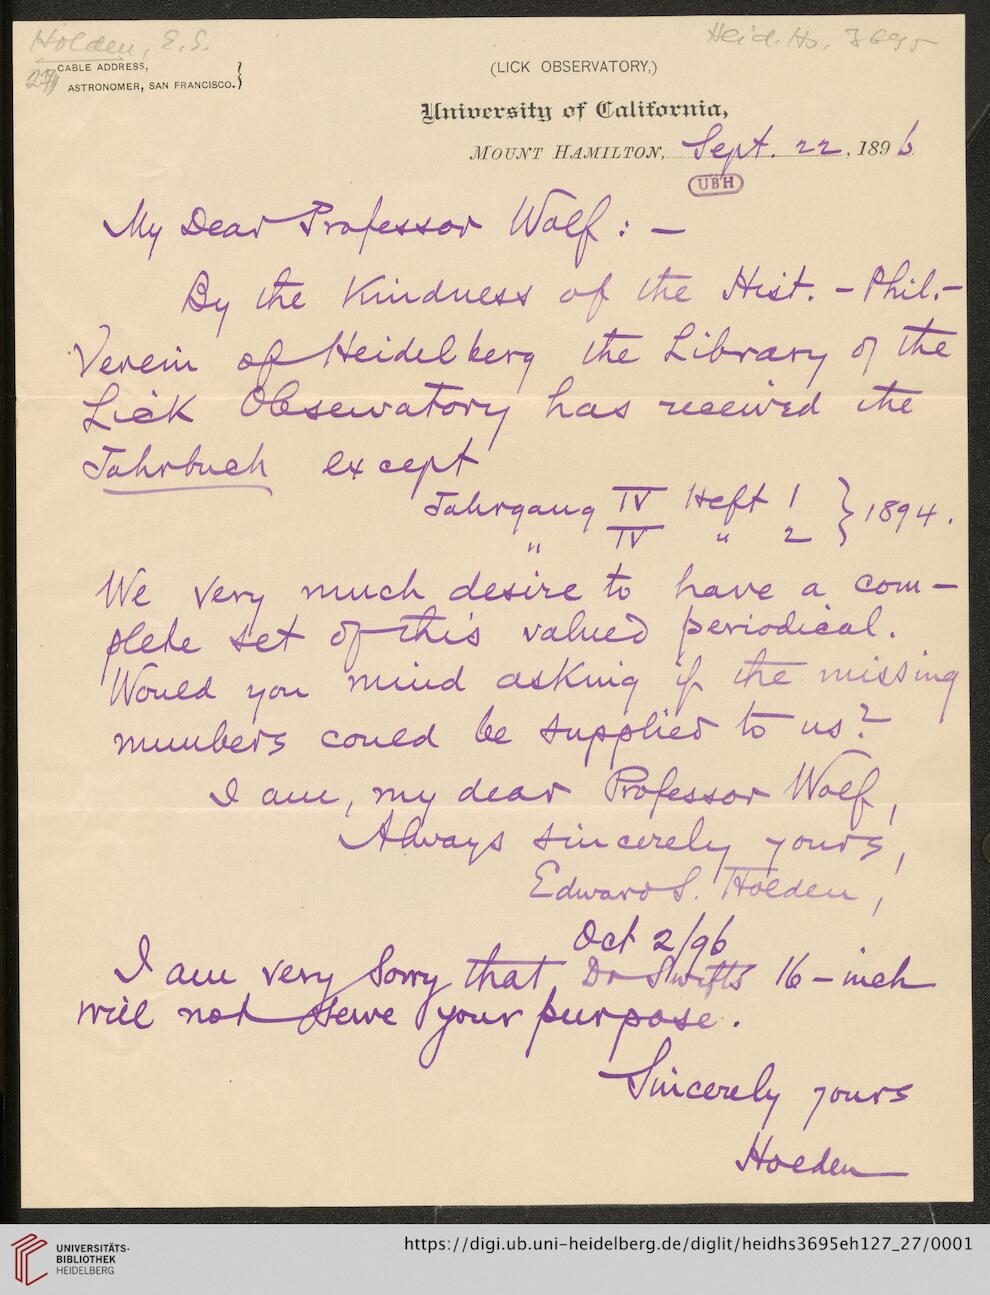 Holden, E. S.
Heid. Hs. 3695
27
CABLE ADDRESS,
ASTRONOMER, SAN FRANCISCO.
(LICK OBSERVATORY,)
University of California,
MOUNT HAMILTON, Sept. 22, 1896
UBH
My Dear Professor Wolf: —
By the Kindness of the Hist. - Phil. -
Verein of Heidelberg the Library of the
Lick Observatory has received the
Jahrbuch except
Jahrgang IV Heft 1 } 1894.
" IV " 2
We very much desire to have a com-
plete set of this valued periodical.
Would you mind asking if the missing
numbers could be supplied to us?
I am, my dear Professor Wolf,
Always sincerely yours,
Edward S. Holden,
Oct 2/96
I am very sorry that Dr Swifts 16-inch
will not serve your purpose.
Sincerely yours
Holden
UNIVERSITÄTS-
BIBLIOTHEK
HEIDELBERG
https://digi.ub.uni-heidelberg.de/diglit/heidhs3695eh127_27/0001